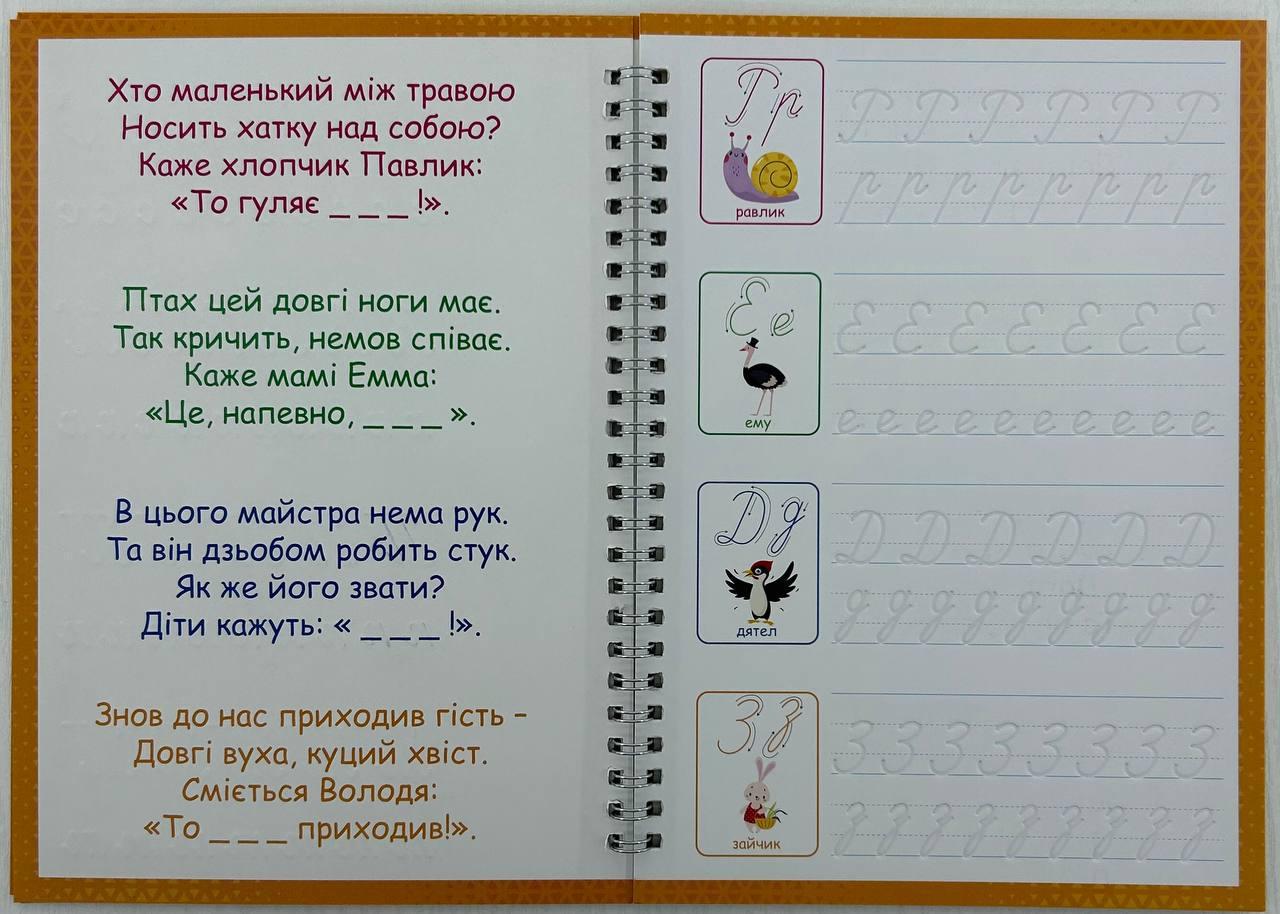 Хто маленький між травою
Носить хатку над собою?
Каже хлопчик Павлик:
«То гуляє _ _ _ !».
Птах цей довгі ноги має.
Так кричить, немов співає.
Каже мамі Емма:
«Це, напевно, _ _ _ ».
В цього майстра нема рук.
Та він дзьобом робить стук.
Як же його звати?
Діти кажуть: « _ _ _ !».
Знов до нас приходив гість –
Довгі вуха, куций хвіст.
Сміється Володя:
«То _ _ _ приходив!».
Р р
равлик
Р Р Р Р Р Р
р р р р р р р р р
Е е
ему
Е Е Е Е Е Е Е
е е е е е е е е е е
Д д
дятел
Д Д Д Д Д Д
д д д д д д д д д
З з
зайчик
З З З З З З З З
з з з з з з з з з